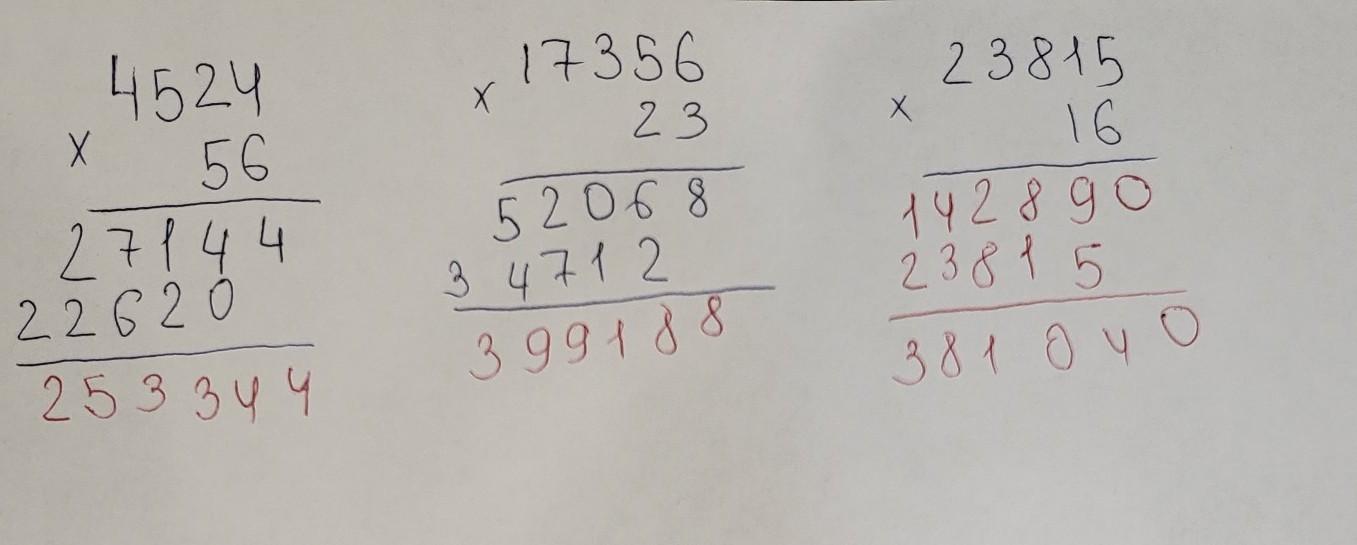 4524
x 56
27144
22620
253344
17356
x 23
52068
34712
399188
23815
x 16
142890
23815
381040